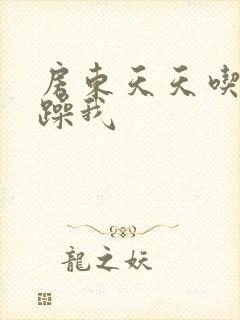 房东天天喫
躁我
龍之妖